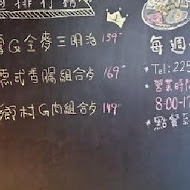 排行榜
G全麥三明治 139
德式香腸組合点 169
鄉村G肉組合点 149
每週
Tel: 225
營業時
8:00-17
點餐